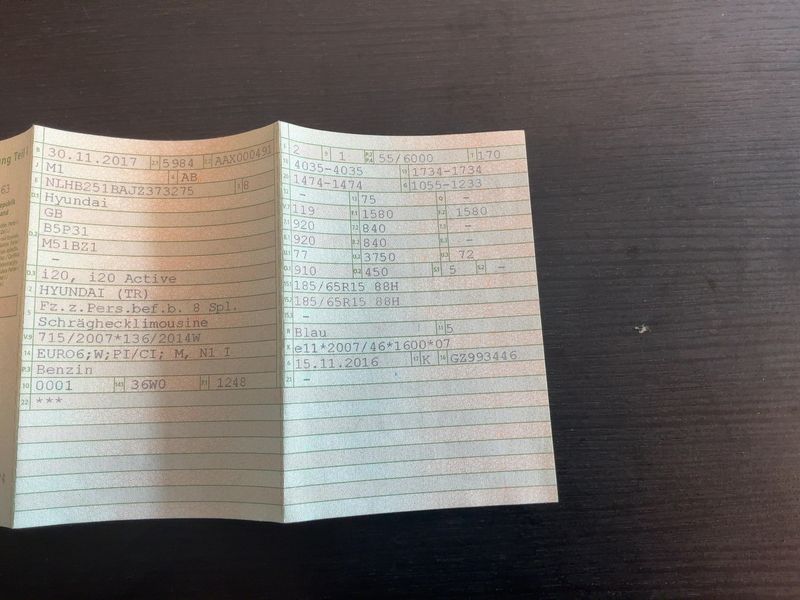 ng Teil I
63
B 30.11.2017 2.1 5984 2.2 AAX000491
J M1 4 AB
E NLHB251BAJZ373275 3 8
D.1 Hyundai
GB
D.2 B5P31
M51BZ1
–
D.3 i20, i20 Active
2 HYUNDAI (TR)
5 Fz.z.Pers.bef.b. 8 Spl.
Schräghecklimousine
V.9 715/2007*136/2014W
14 EURO6;W;PI/CI; M, N1 I
P.3 Benzin
10 0001 14.1 36W0 P.1 1248
22 ***
L 2 9 1 P.2 P.4 55/6000 T 170
18 4035-4035 19 1734-1734
20 1474-1474 G 1055-1233
12 – 13 75 Q –
V.7 119 F.1 1580 F.2 1580
7.1 920 7.2 840 7.3 –
8.1 920 8.2 840 8.3 –
U.1 77 U.2 3750 U.3 72
O.1 910 O.2 450 S.1 5 S.2 –
15.1 185/65R15 88H
15.2 185/65R15 88H
15.3 –
R Blau 11 5
K e11*2007/46*1600*07
6 15.11.2016 17 K 16 GZ993446
21 –